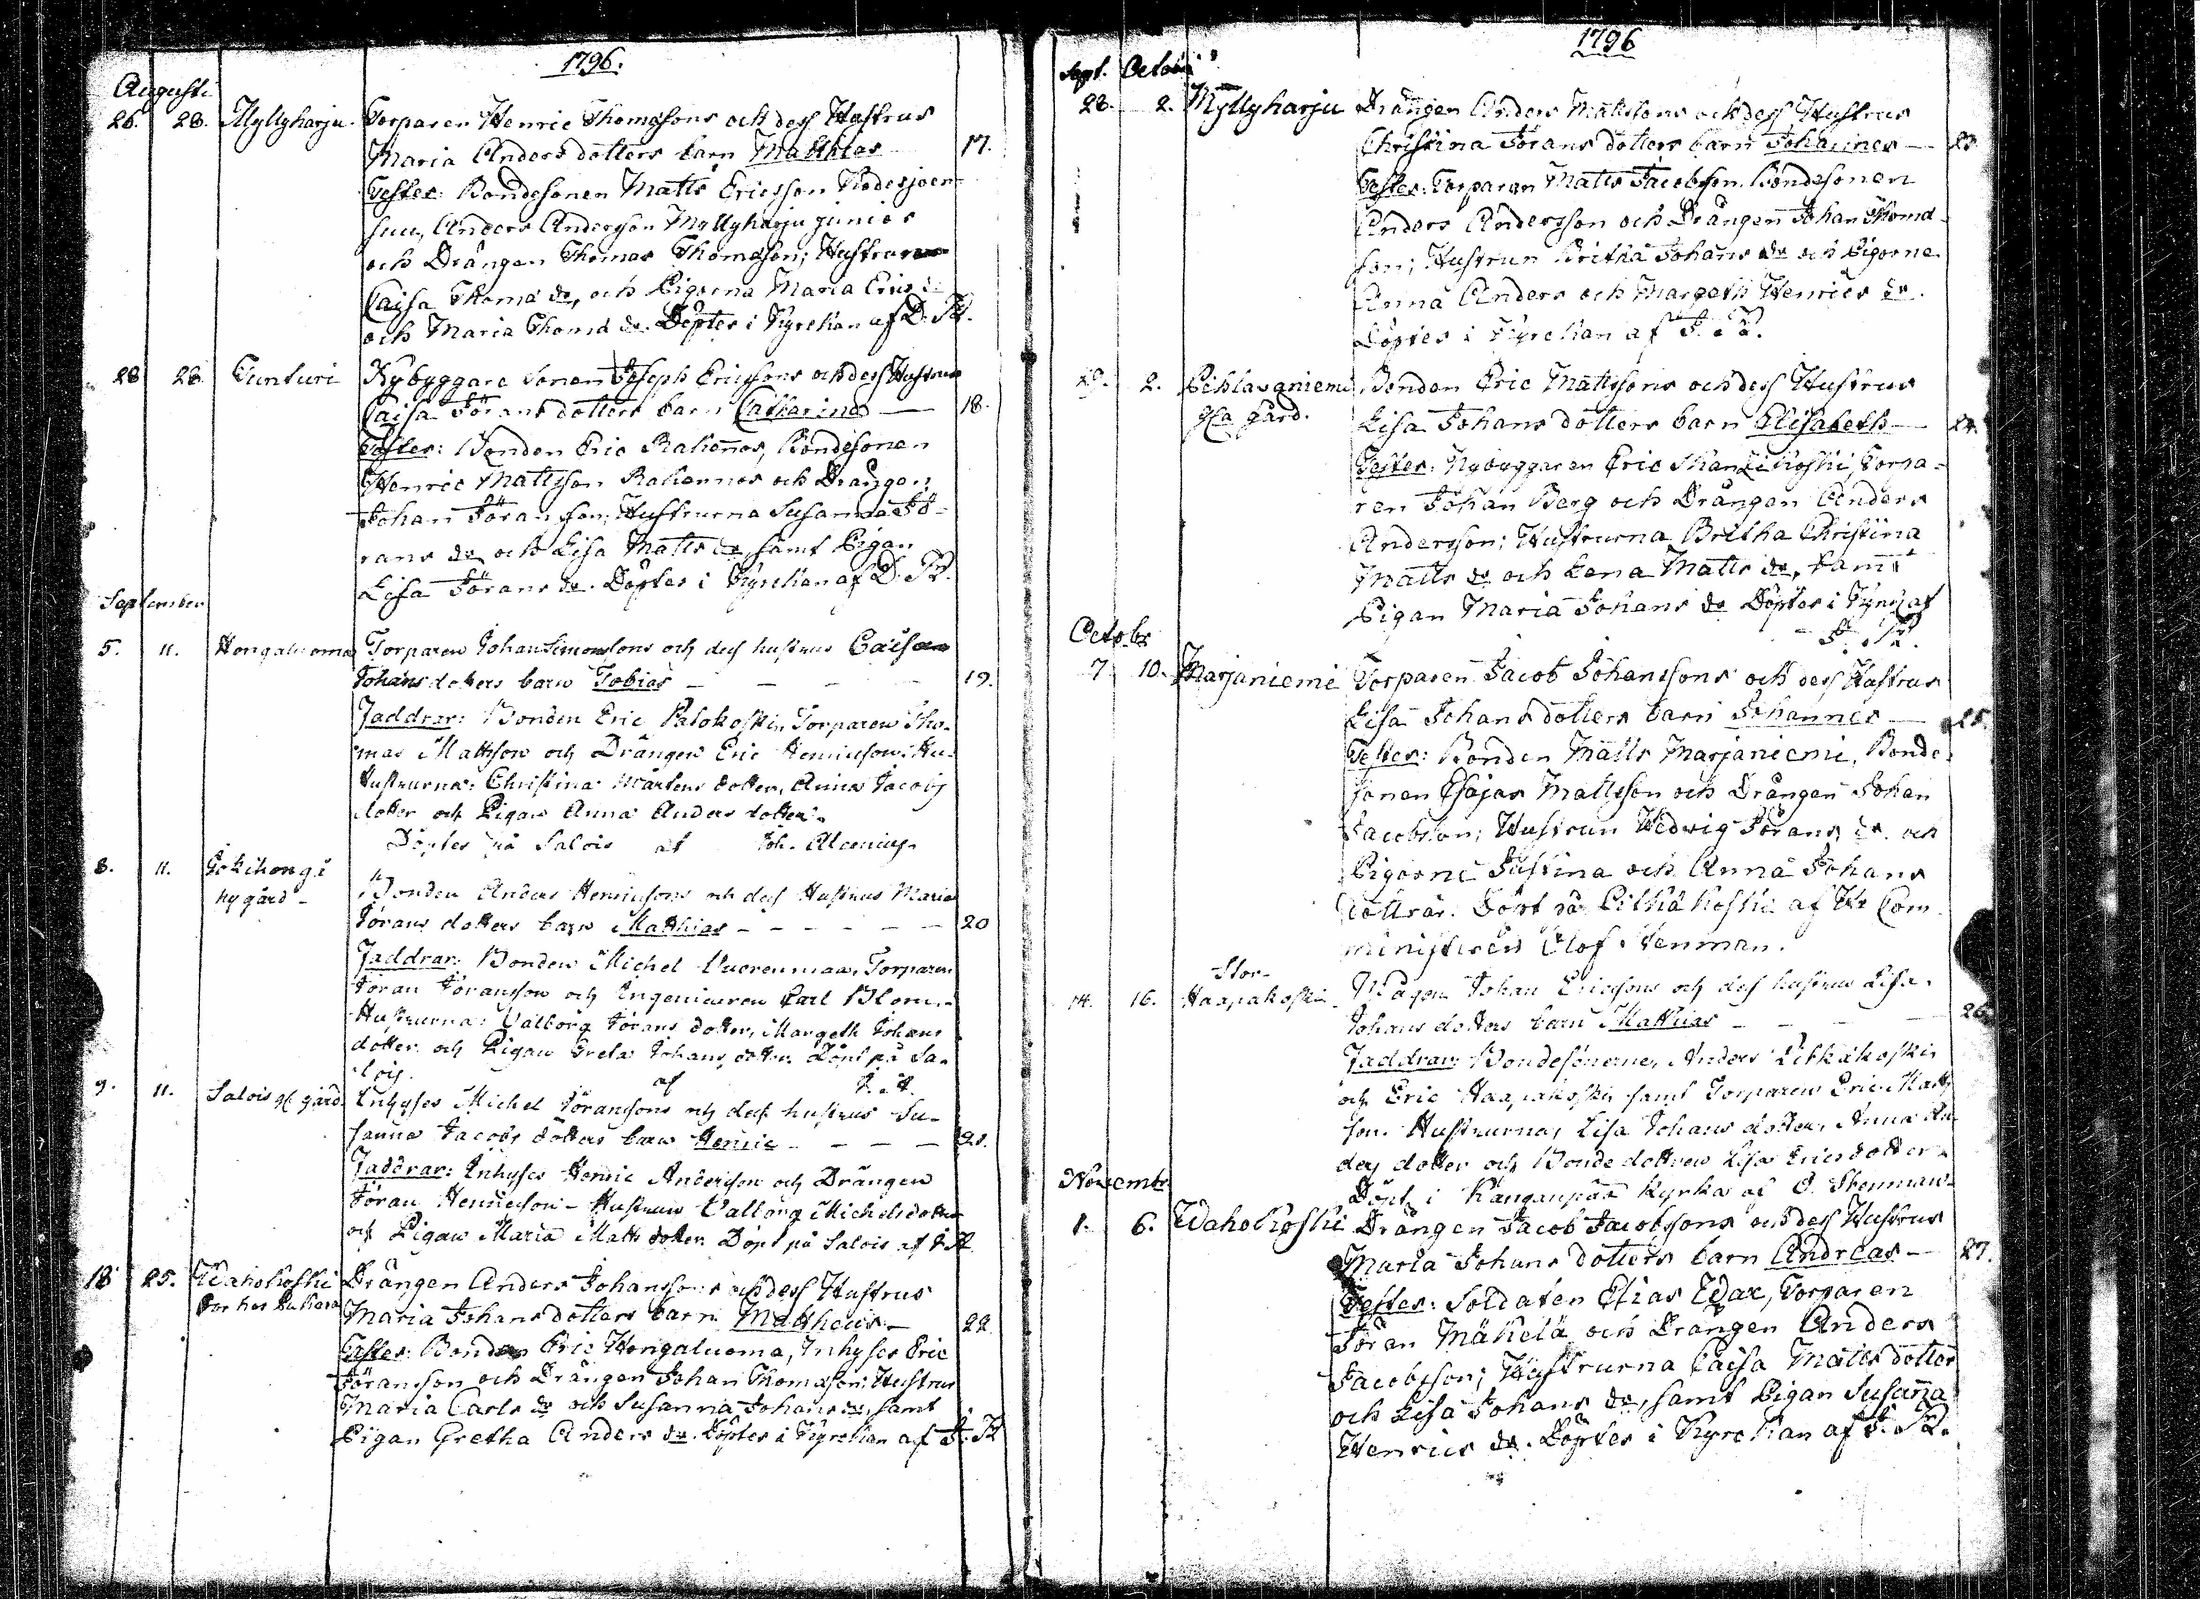 1796.
Augusti
26. 28. Myllyharju. Torparen Henric Thomasons och dess Hustrus
Maria Anders dotters barn Matthias 17.
Testes: Bondesonen Matts Ericsson
Anders Anderson Myllyharju junior
och Drängen Thomas Thomason; Hustrun
Caisa Thomæ dr, och Pigorna Maria Erics dr
och Maria Thomæ dr. Döptes i Kyrckan af D. K.
28 28. Tunturi Nybyggare Sonen Joseph Ericssons och dess Hustrus
Caisa Jörans dotters barn Catharina — 18.
Testes: Bonden Eric Rahennos, Bondesonen
Henric Mattsson Rahennos och Drängen
Johan Jöransson; Hustrurna Susanna Jö-
rans dr och Lisa Matts dr samt Pigan
Lisa Jörans dr. Döptes i Kyrckan af D. K.
September
5. 11. Hongaluoma Torparen Johan Simonsons och dess hustrus Caisa
Johans dotters barn Tobias — — — — 19.
Faddrar: Bonden Eric Palokoski, Torparen Tho-
mas Mattsson och Drängen Eric Henricson. Hu-
Hustrurna: Christina Mårtens dotter, Anna Jacobs
dotter och Pigan Anna Anders dotter.
Döptes på Salois af Joh. Alcenius.
8. 11. Jokihongi Bonden Anders Henricsons och dess Hustrus Maria
nygård -
Jörans dotters barn Matthias — — — — — 20
Faddrar: Bonden Michel Vuorenmaa, Torparen
Jöran Jöransson och Ingenieuren Carl Blom.
Hustrurna: Valborg Jörans dotter, Margeth Johans
dotter och Pigan Greta Johans dotter. Döpt på Sa-
lois. af J. A.
9. 11. Salois gl gård. Inhyses Michel Jöransons och dess hustrus Su-
sanna Jacobs dotters barn Henric — — — — 21.
Faddrar: Inhyses Henric Anderson och Drängen
Jöran Henricson - Hustrun Valborg Michelsdotter
och Pigan Maria Matts dotter. Döpt på Salois af J A
18 25. Wahokoski Drängen Anders Johanssons och dess Hustrus
Maria Johans dotters barn Mattheus — 22.
Testes: Bonden Eric Hongaluoma, Inhyses Eric
Jöransson och Drängen Johan Thomason; Hustrun
Maria Carls dr och Susanna Johans dr, samt
Pigan Gretha Anders dr. Döptes i Kyrckan af J. K
1796
Sept. October
28. 2. Myllyharju Drängen Anders Mattssons och dess Hustrus
Christina Jörans dotters barn Johannes — 23.
Testes: Torparen Matts Jacobsson. Bondesonen
Anders Andersson och Drängen Johan Thoma-
son; Hustrun Britha Johans dr och Pigorne
Anna Anders och Margeth Henrics dr.
Döptes i Kyrckan af J. K.
29. 2. Pihlavaniemi Bonden Eric Mattssons och dess Hustrus
gla gård. Lisa Johans dotters barn Elisabeth — 24.
Testes: Nybyggaren Eric Torpa-
ren Johan Berg och Drängen Anders
Andersson; Hustrurna Britha Christina
Matts dr och Lena Matts dr, samt
Pigan Maria Johans dr Döptes i Kyrck af
J. K.
Octobr
7 10. Marjaniemi Torparen Jacob Johanssons och dess Hustrus
Lisa Johans dotters barn Johannes — 25.
Testes: Bonden Matts Marjaniemi, Bonde-
sonen Esajas Mattsson och Drängen Johan
Jacobsson; Hustrun Hedwig Jörans dr. och
Pigorne Justina och Anna Johans
döttrar. Döpt på Pitkäkoski af Hr Com-
ministern Olof Stenman.
Stor-
14. 16. Haapakoski Mågen Johan Ericsons och dess hustrus Lisa
Johans dotters barn Matthias — — — — 26.
Faddrar: Bondesönerne, Anders Pitkäkoski
och Eric Haapakoski samt Torparen Eric Matts
son. Hustrurna, Lisa Johans dotter, Anna An-
ders dotter och Bonde dottren Lisa Ericsdotter.
Döpt i Kangaspää Kyrka af O. Stenman.
Novembr
1. 6. Wahokoski Drängen Jacob Jacobssons och dess Hustrus
Maria Johans dotters barn Andreas — 27.
Testes: Soldaten Elias Wax, Torparen
Jöran Mäkelä och Drängen Anders
Jacobsson; Hustrurna Caisa Matts dotter
och Lisa Johans dr, samt Pigan Susanna
Henrics dr. Döptes i Kyrckan af J. K.